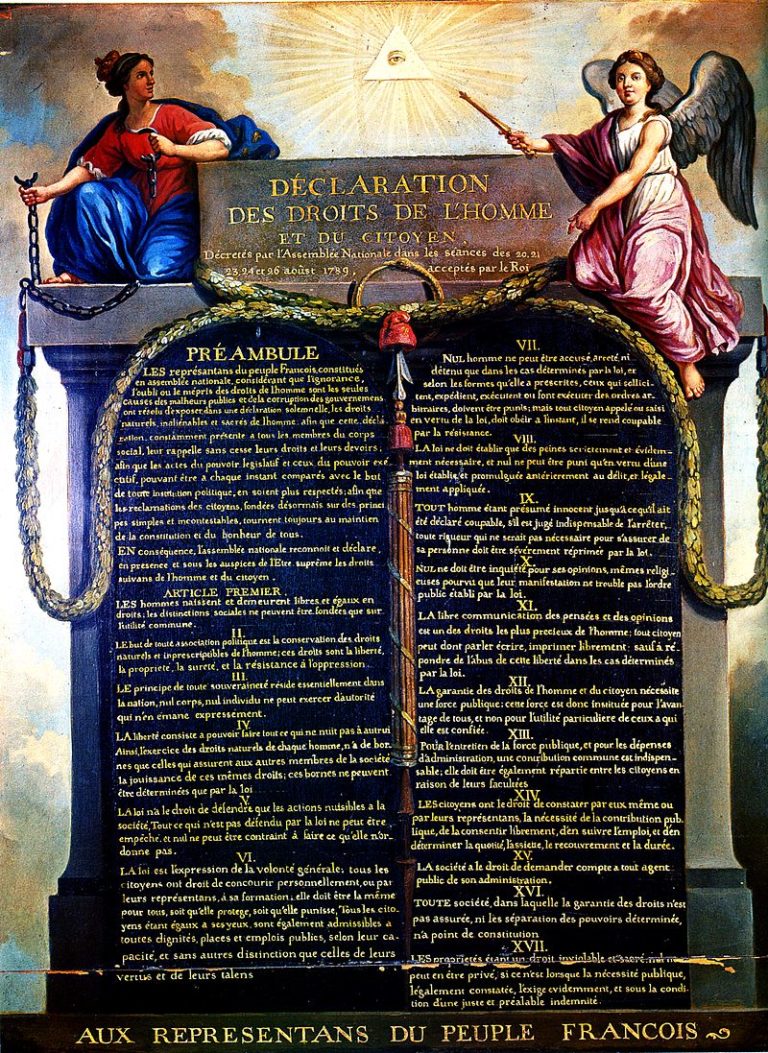 DÉCLARATION
DES DROITS DE L'HOMME
ET DU CITOYEN,
Décretés par l'Assemblée Nationale dans les séances des 20, 21
23, 24 et 26 août 1789, acceptés par le Roi
PRÉAMBULE
LES représantans du peuple Francois, constitués
en assemblée nationale, considérant que l'ignorance,
l'oubli ou le mépris des droits de l'homme sont les seules
causes des malheurs publics et de la corruption des gouvernemens
ont résolu d'exposer, dans une déclaration solemnelle, les droits
naturels, inaliénables et sacrés de l'homme: afin que cette décla-
ration, constamment présente a tous les membres du corps
social, leur rappelle sans cesse leurs droits et leurs devoirs;
afin que les actes du pouvoir législatif et ceux du pouvoir exé-
cutif, pouvant être a chaque instant comparés avec le but
de toute institution politique, en soient plus respectés; afin que
les reclamations des citoyens, fondées désormais sur des princi
pes simples et incontestables, tournent toujours au maintien
de la constitution et du bonheur de tous.
EN conséquence, l'assemblée nationale reconnoit et déclare,
en presence et sous les auspices de l'Etre suprême les droits
suivans de l'homme et du citoyen.
ARTICLE PREMIER.
LES hommes naissent et demeurent libres et égaux en
droits; les distinctions sociales ne peuvent être fondées que sur
l'utilité commune.
II.
LE but de toute association politique est la conservation des droits
naturels et inprescripibles de l'homme; ces droits sont la liberté,
la proprieté, la sureté, et la résistance à l'oppression.
III.
LE principe de toute souveraineté réside essentiellement dans
la nation, nul corps, nul individu ne peut exercer d'autorité
qui n'en émane expressement.
IV.
LA liberté consiste a pouvoir faire tout ce qui ne nuit pas à autrui
Ainsi, l'exercice des droits naturels de chaque homme, n'a de bor-
nes que celles qui assurent aux autres membres de la société
la jouissance de ces mêmes droits; ces bornes ne peuvent
être déterminées que par la loi
V.
LA loi n'a le droit de défendre que les actions nuisibles a la
société, Tout ce qui n'est pas défendu par la loi ne peut être
empêché, et nul ne peut être contraint à faire ce qu'elle n'or-
donne pas.
VI.
LA loi est l'expression de la volonté générale; tous les
citoyens ont droit de concourir personnellement, ou par
leurs représentans, à sa formation; elle doit être la même
pour tous, soit qu'elle protege, soit qu'elle punisse, Tous les cito-
yens étant égaux à ses yeux, sont également admissibles a
toutes dignités, places et emplois publics, selon leur ca-
pacité, et sans autres distinction que celles de leurs
vertus et de leurs talens
VII.
NUL homme ne peut être accusé, arreté, ni
détenu que dans les cas déterminés par la loi, et
selon les formes qu'elle a prescrites, ceux qui sollici-
tent, expédient, exécutent ou font exécuter des ordres ar-
bitraires, doivent être punis; mais tout citoyen appelé ou saisi
en vertu de la loi, doit obéir a l'instant, il se rend coupable
par la résistance.
VIII.
LA loi ne doit établir que des peines strictement et évidem-
ment nécessaire, et nul ne peut être puni qu'en vertu d'une
loi établie, et promulguée antérierement au délit, et légale-
ment appliquée.
IX.
TOUT homme étant présumé innocent jusqu'à ce qu'il ait
été déclaré coupable, s'il est jugé indispensable de l'arrêter,
toute rigueur qui ne serait pas nécessaire pour s'assurer de
sa personne doit être sévèrement réprimée par la loi.
X.
NUL ne doit être inquiété pour ses opinions, mêmes religi-
euses pourvu que leur manifestation ne trouble pas l'ordre
public établi par la loi.
XI.
LA libre communication des pensées et des opinions
est un des droits les plus precieux de l'homme; tout citoyen
peut dont parler écrire, imprimer librement: sauf à ré-
pondre de l'abus de cette liberté dans les cas déterminés
par la loi.
XII.
LA garantie des droits de l'homme et du citoyen nécessite
une force publique: cette force est donc instituée pour l'avan-
tage de tous, et non pour l'utilité particuliere de ceux a qui
elle est confiée.
XIII.
POUR l'entretien de la force publique, et pour les dépenses
d'administration, une contribution commune est indispen-
sable; elle doit être également répartie entre les citoyens en
raison de leurs facultées
XIV.
LES citoyens ont le droit de constater par eux même ou
par leurs représentans, la nécessité de la contribution pub-
lique, de la consentir librement, d'en suivre l'emploi, et d'en
déterminer la quotité, l'assiette, le recouvrement et la durée.
XV.
LA société a le droit de demander compte a tout agent
public de son administration.
XVI.
TOUTE société, dans laquelle la garantie des droits n'est
pas assurée, ni les séparation des pouvoirs déterminée,
n'a point de constitution
XVII.
LES proprietés étant un droit inviolable et sacré, nul ne
peut en être privé, si ce n'est lorsque la nécessité publique,
légalement constatée, l'exige evidemment, et sous la condi-
tion d'une juste et préalable indemnité.
AUX REPRESENTANS DU PEUPLE FRANCOIS